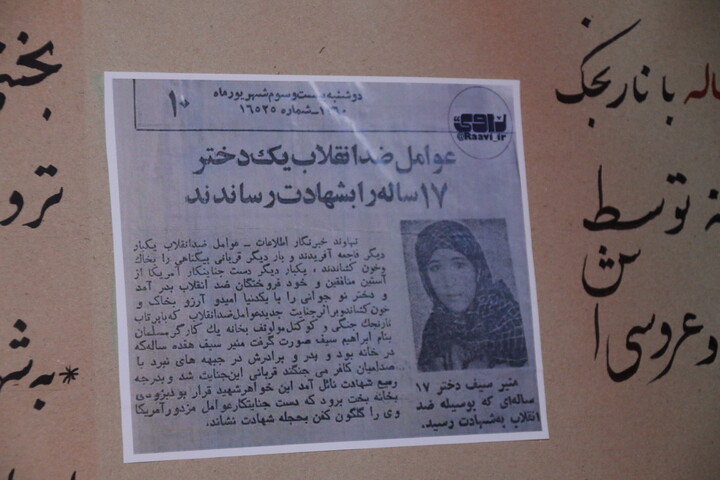 دوشنبه بیست و سوم شهریور ماه
۱۳۶۰ـ شماره ۱۶۵۲۵
۱۰
راوی
@Raavi_ir
عوامل ضد انقلاب یک دختر
۱۷ ساله را بشهادت رساندند
نهاوند خبرنگار اطلاعات ـ عوامل ضدانقلاب یکبار
دیگر فاجعه آفریدند و بار دیگر قربانی بیگناهی را بخاک
وخون کشاندند، یکبار دیگر دست جنایتکار آمریکا از
آستین منافقین و خود فروختگان ضد انقلاب بدر آمد
و دختر نو جوانی را با یکدنیا امیدو آرزو بخاک و
خون کشاندو براثرجنایت جدیدعوامل‌ضدانقلاب که‌باپرتاب
نارنجک جنگی و کوکتل‌مولوتف بخانه یک کارگرمسلمان
بنام ابراهیم سیف صورت گرفت منیر سیف هفده ساله‌که
در خانه بود و پدر و برادرش در جبهه های نبرد با
صدامیان کافر می جنگند قربانی این‌جنایت شد و بدرجه
رفیع شهادت نائل آمد این خواهرشهید قرار بود بزودی
بخانه بخت برود که دست جنایتکارعوامل مزدورآمریکا
وی را گلگون کفن بحجله شهادت نشاند.
منیر سیف دختر ۱۷
ساله‌ای که بوسیله ضد
انقلاب به‌شهادت رسید.
با نارنجک
توسط
و عروسی
ترو